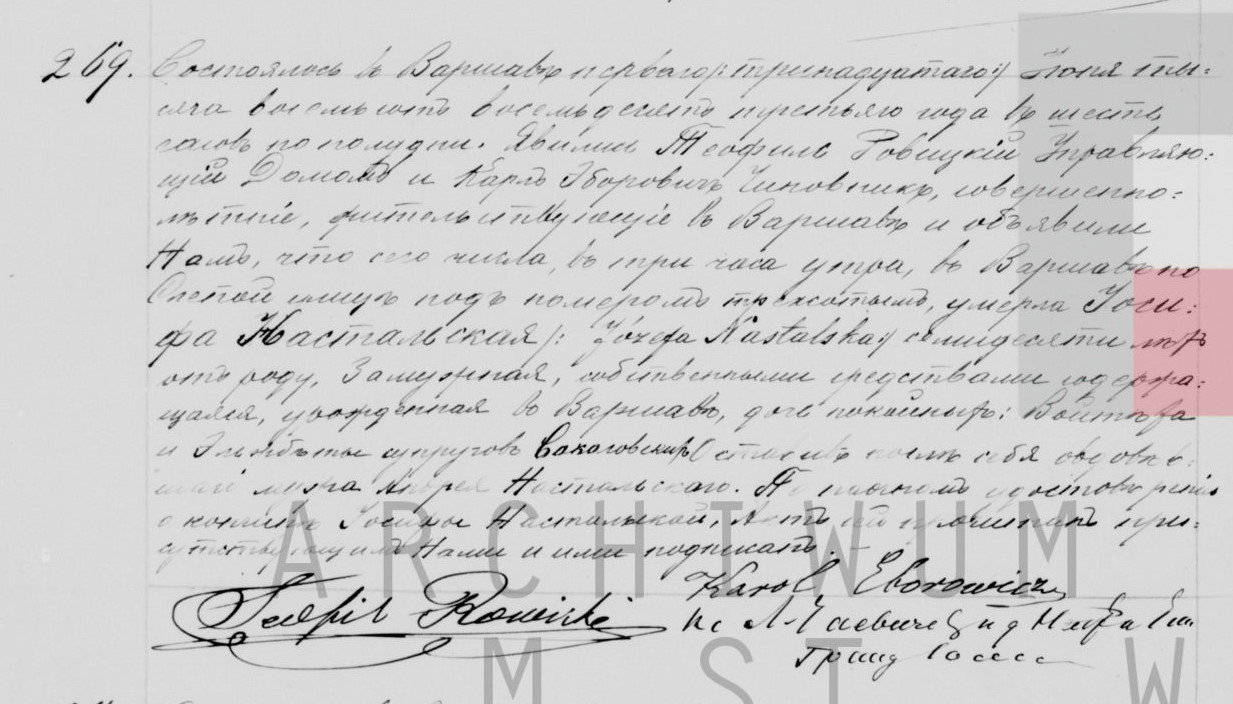 269. Состоялось въ Варшавѣ перваго /: тринадцатаго :/ Іюня ты=
сяча восемьсотъ восемьдесятъ третьяго года въ шесть
часовъ по полудни. Явились Теофилъ Ровицкій Управляю=
щій Домомъ и Карлъ Эборовичъ Чиновникъ, совершенно=
лѣтніе, жительствующіе въ Варшавѣ и объявили
Намъ, что сего числа, въ три часа утра, въ Варшавѣ по
улицѣ подъ номеромъ трехсотымъ, умерла Іоси=
фа Настальская /: Józefa Nastalska :/ семидесяти лѣтъ
отъ роду, Замужная, собственными средствами содержа=
щаяся, урожденная въ Варшавѣ, дочь покойныхъ: Войтѣха
и Эльжбѣты супруговъ Сакаговскихъ Оставивъ послѣ себя овдовѣв=
шаго мужа Андрея Настальскаго. По настоящемъ удостовѣреніи
о кончинѣ Іосифы Настальской, Актъ сей прочитанъ при=
сутствующимъ Нами и ими подписанъ.
Teofil Rowicki Karol Eborowicz
A R C H I W U M
M S T W